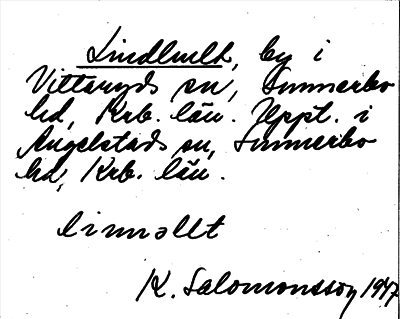 Lindhult, by i
Vittaryds sn, Sunnerbo
hd, Krb. län. Uppt. i
Angelstads sn, Sunnerbo
hd, Krb. län.
linnəllt
K. Salomonsson 1947